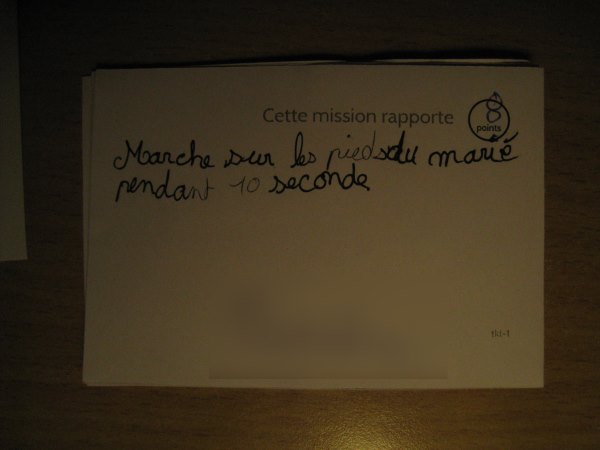 Cette mission rapporte 8 points
Marche sur les pieds du marié
pendant 10 seconde
1kt-1